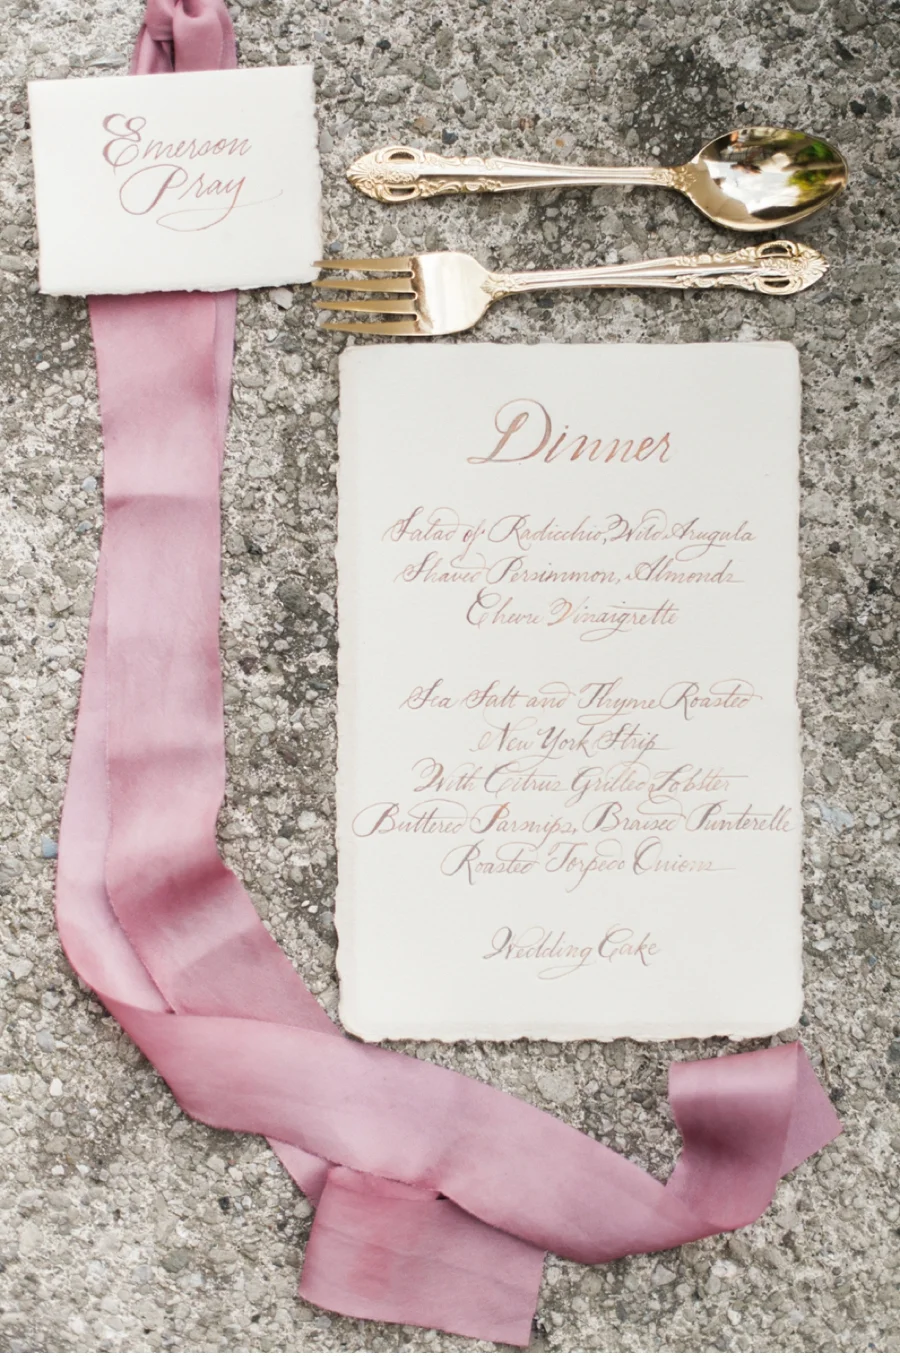 Emerson
Pray
Dinner
Salad of Radicchio, Wild Arugula
Shaved Persimmon, Almonds
Chevre Vinaigrette
Sea Salt and Thyme Roasted
New York Strip
With Citrus Grilled Lobster
Buttered Parsnips, Braised Punterelle
Roasted Torpedo Onions
Wedding Cake